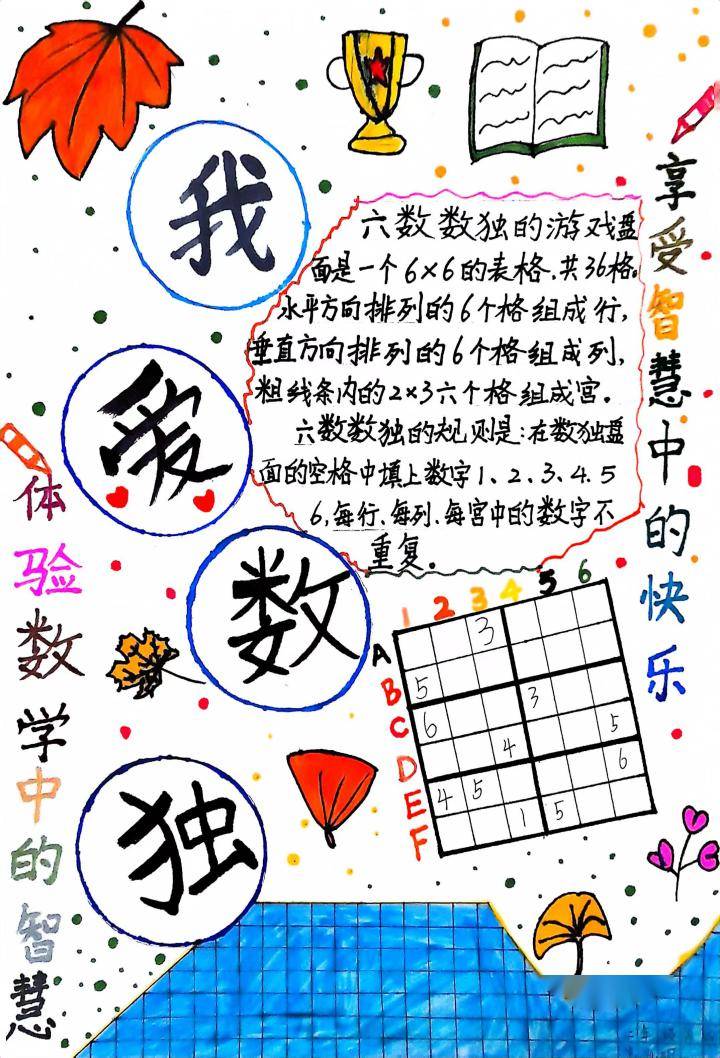 我
爱
数
独
六数数独的游戏盘
面是一个6×6的表格.共36格。
水平方向排列的6个格组成行,
垂直方向排列的6个格组成列,
粗线条内的2×3六个格组成宫。
六数数独的规则是:在数独盘
面的空格中填上数字1、2、3、4、5
6,每行、每列、每宫中的数字不
重复。
享受智慧中的快乐
体验数学中的智慧
1 2 3 4 5 6
A 3
B 5
C 6 3
D 4 5
E 4 5 6
F 1 5